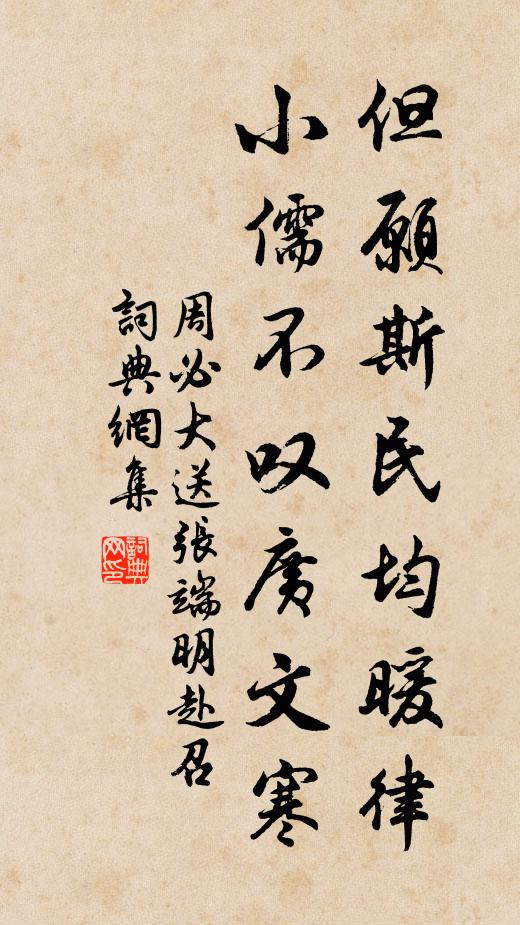 但願斯民均暖律
小儒不叹廣文寒
周必大送張端明赴召
詞典網集
詞典網印